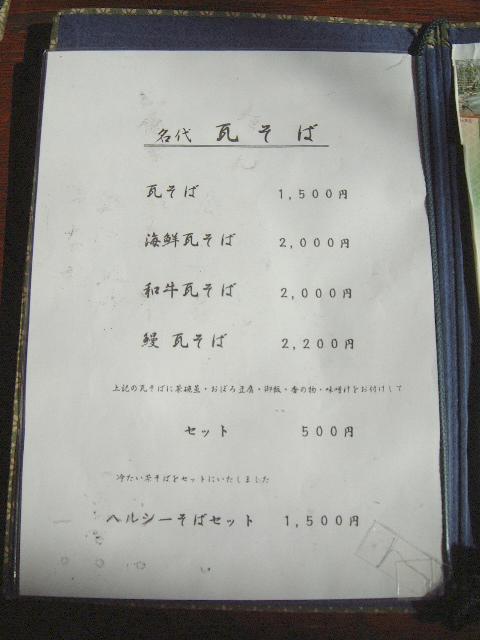 名代 瓦そば
瓦そば 1,500円
海鮮瓦そば 2,000円
和牛瓦そば 2,000円
鰻 瓦そば 2,200円
上記の瓦そばに茶碗蒸・おぼろ豆腐・御飯・香の物・味噌汁をお付けして
セット 500円
冷たい茶そばをセットにいたしました
ヘルシーそばセット 1,500円